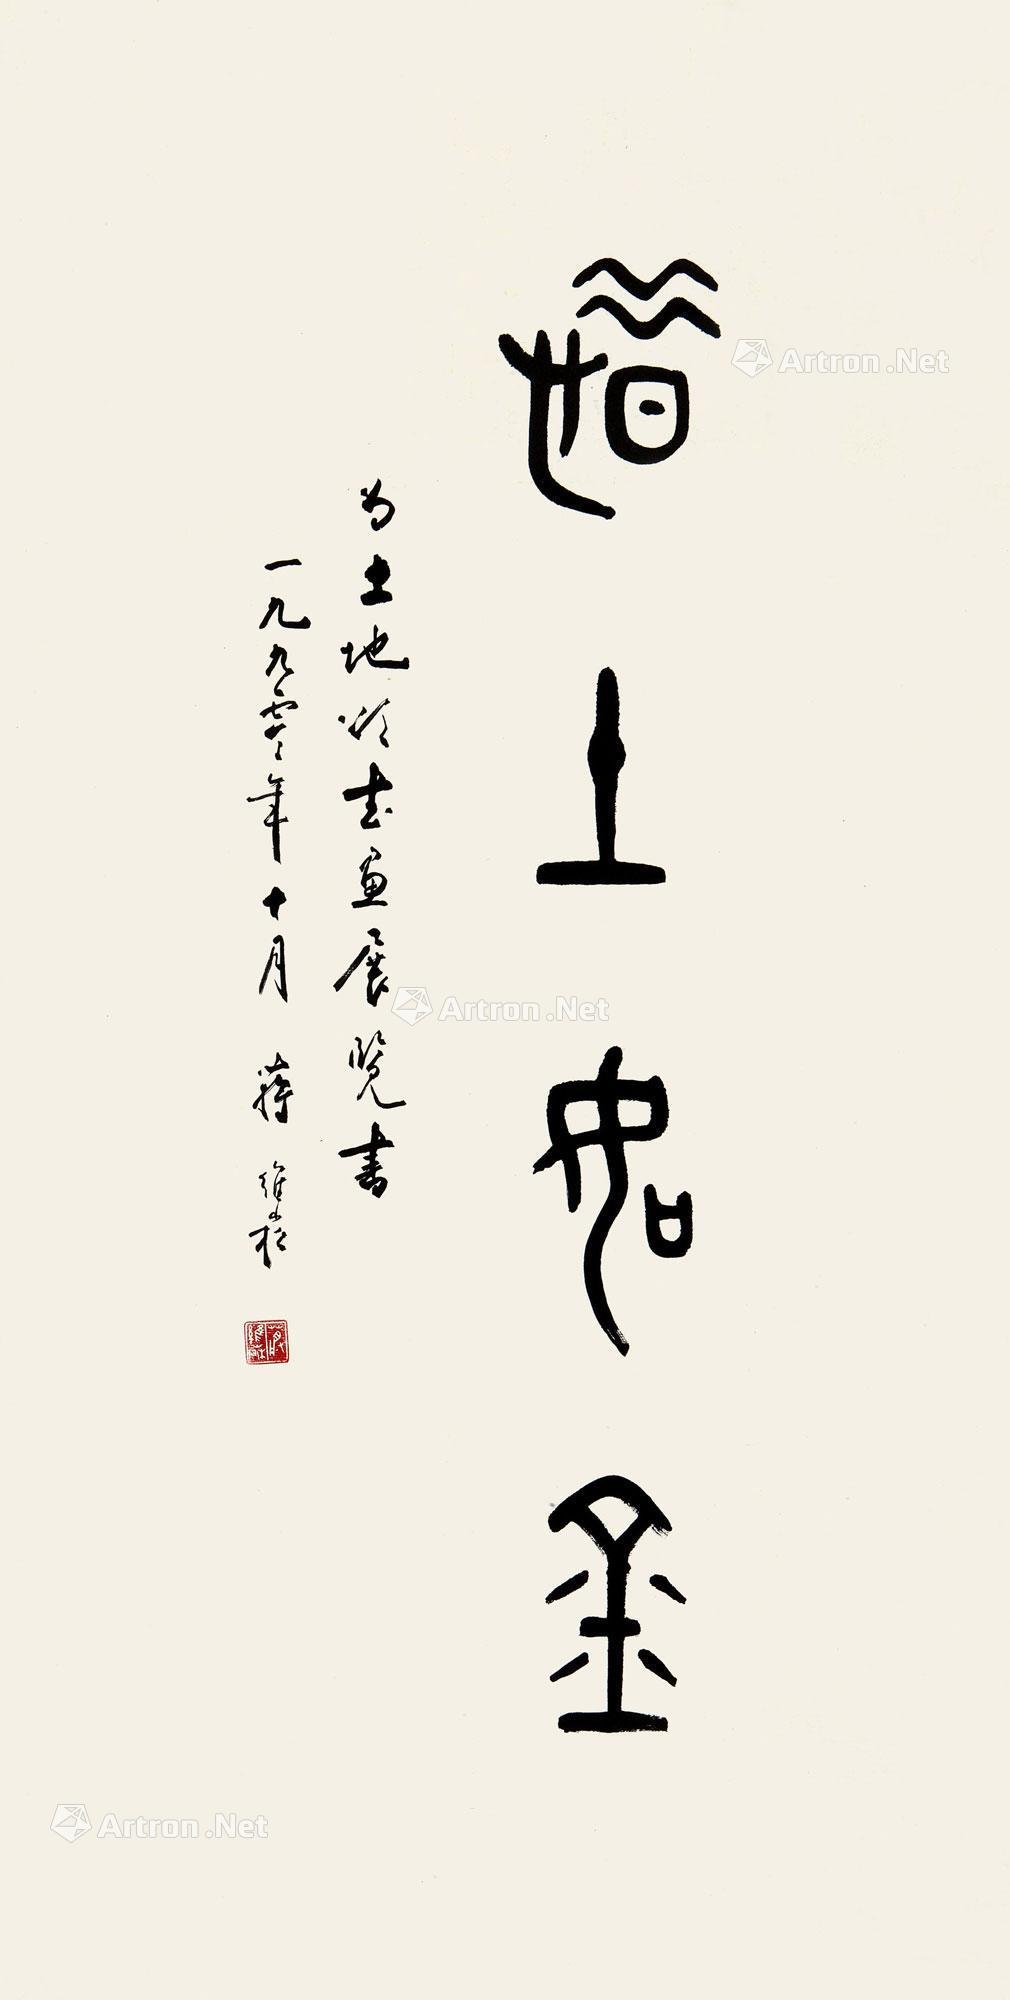 惜土如金
为土地颂书画展览書
一九九零年十月 蒋维崧
Artron.Net
Artron.Net
Artron.Net